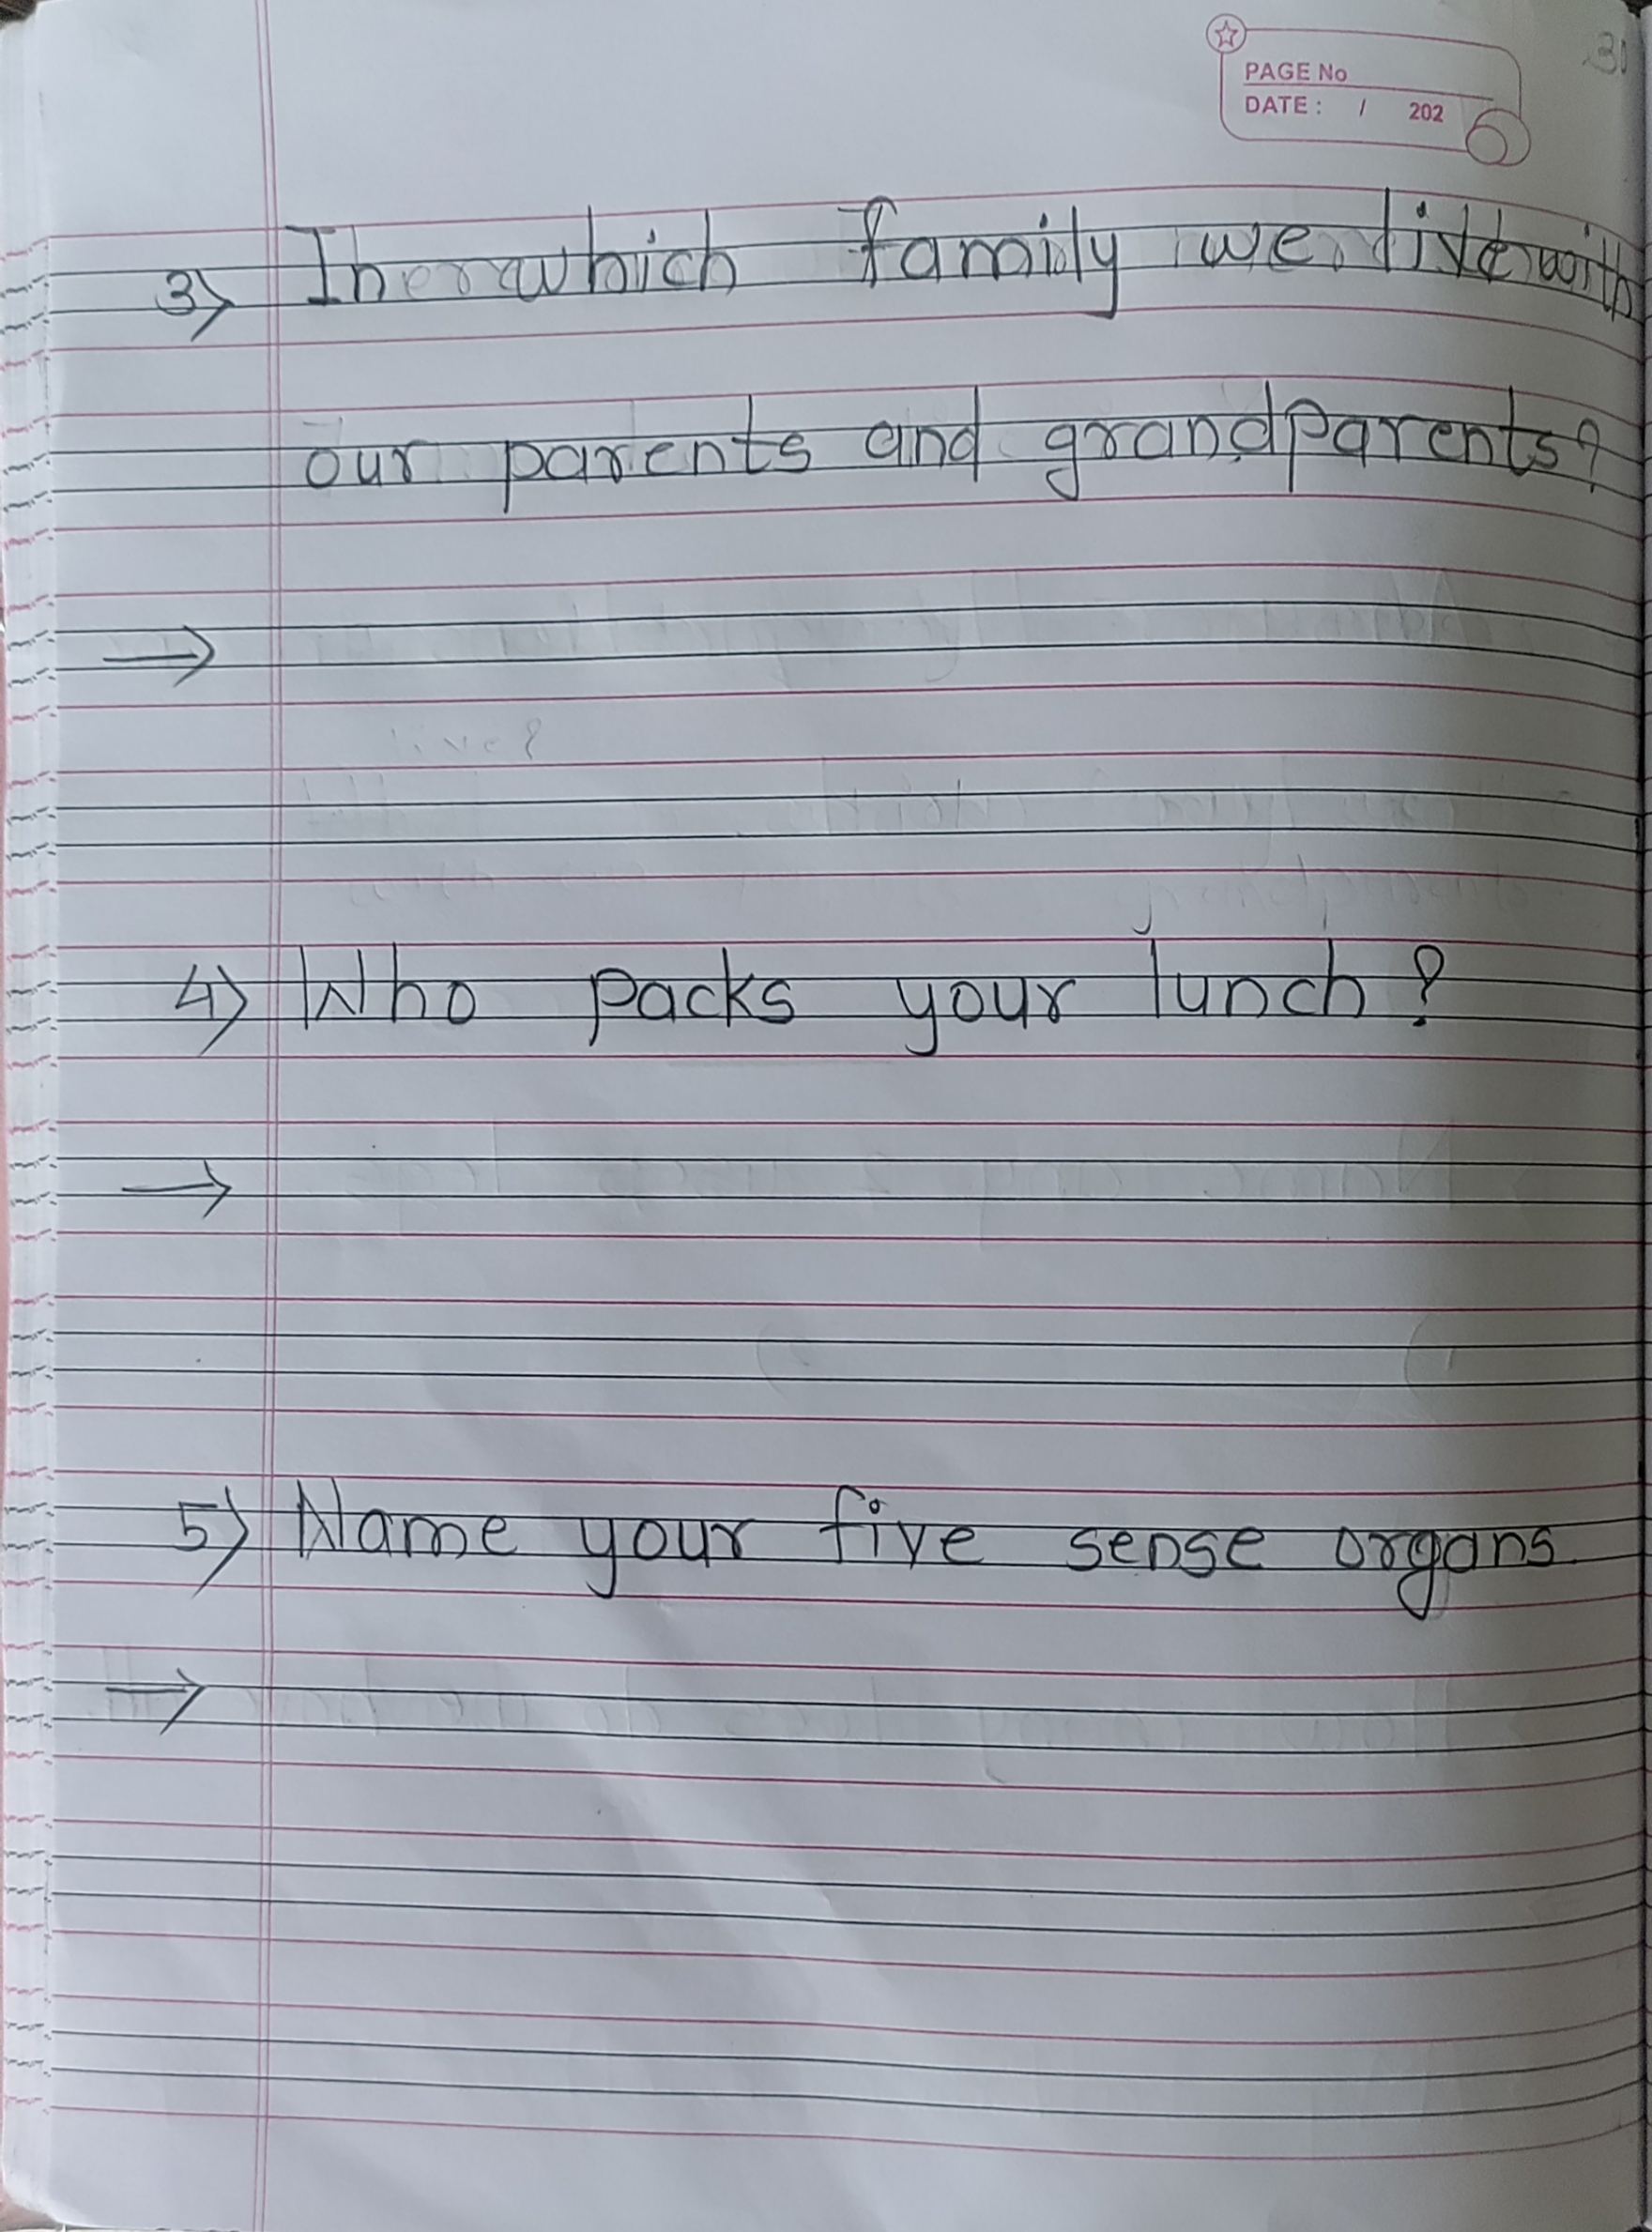 PAGE No
DATE : / 202
3) In which family we live with
our parents and grandparents?
→
live?
→
4) Who packs your lunch?
→
5) Name your five sense organs
→